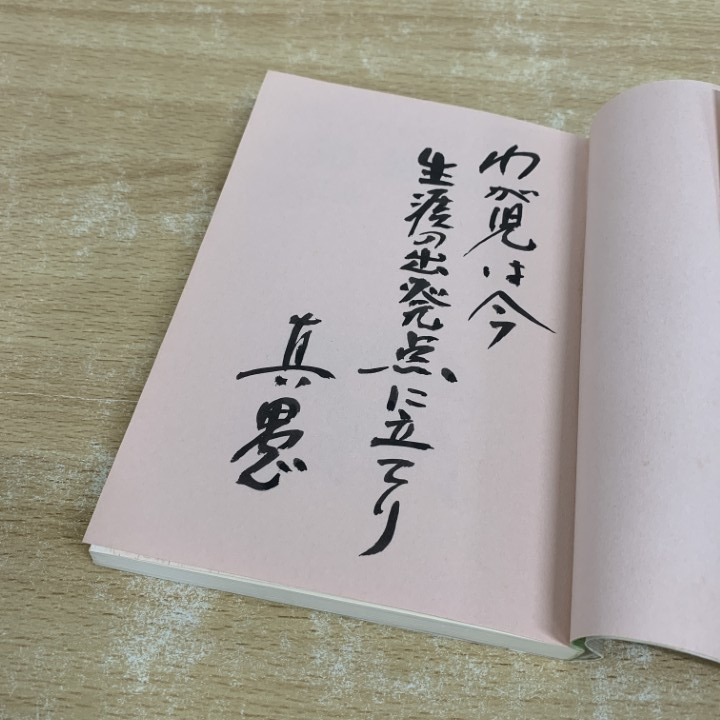 わが児は今
生涯の出発点に立てり
真愚